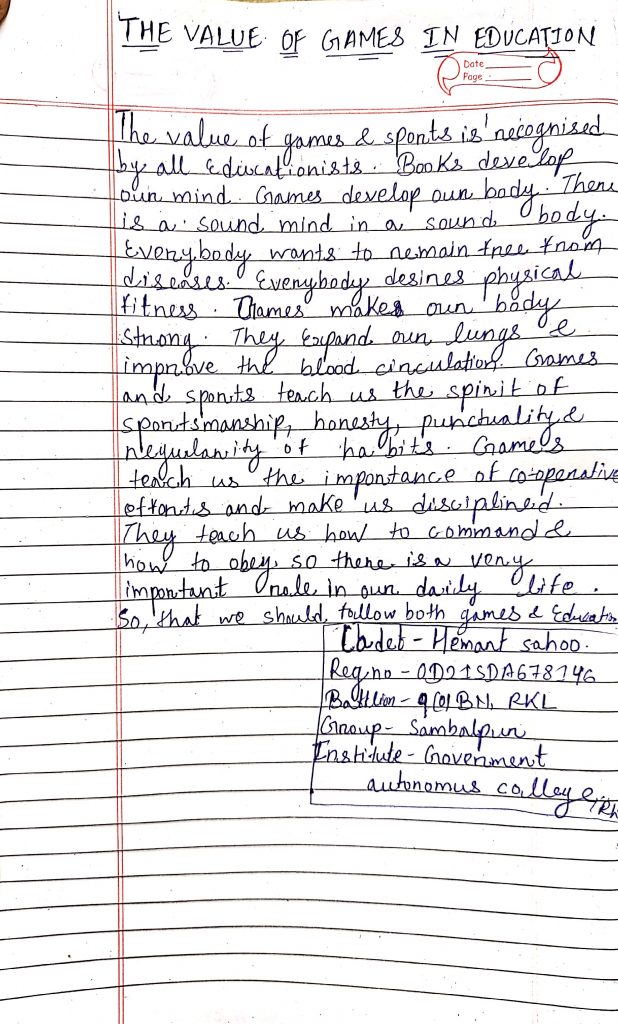 THE VALUE OF GAMES IN EDUCATION
Date
Page
The value of games & sports is recognised
by all Educationists. Books develop
our mind. Games develop our body. There
is a sound mind in a sound body.
Everybody wants to remain free from
diseases. Everybody desires physical
fitness. Games makes our body
strong. They Expand our lungs &
improve the blood circulation. Games
and sports teach us the spirit of
sportsmanship, honesty, punctuality &
regularity of habits. Games
teach us the importance of co-operative
efforts and make us disciplined.
They teach us how to command &
how to obey, so there is a very
important role in our daily life.
So, that we should follow both games & Education
Cadet - Hemant sahoo.
Reg.no - OD21SDA678146
Battlion - BN, RKL
Group - Sambalpur
Institute - Government
autonomus college,